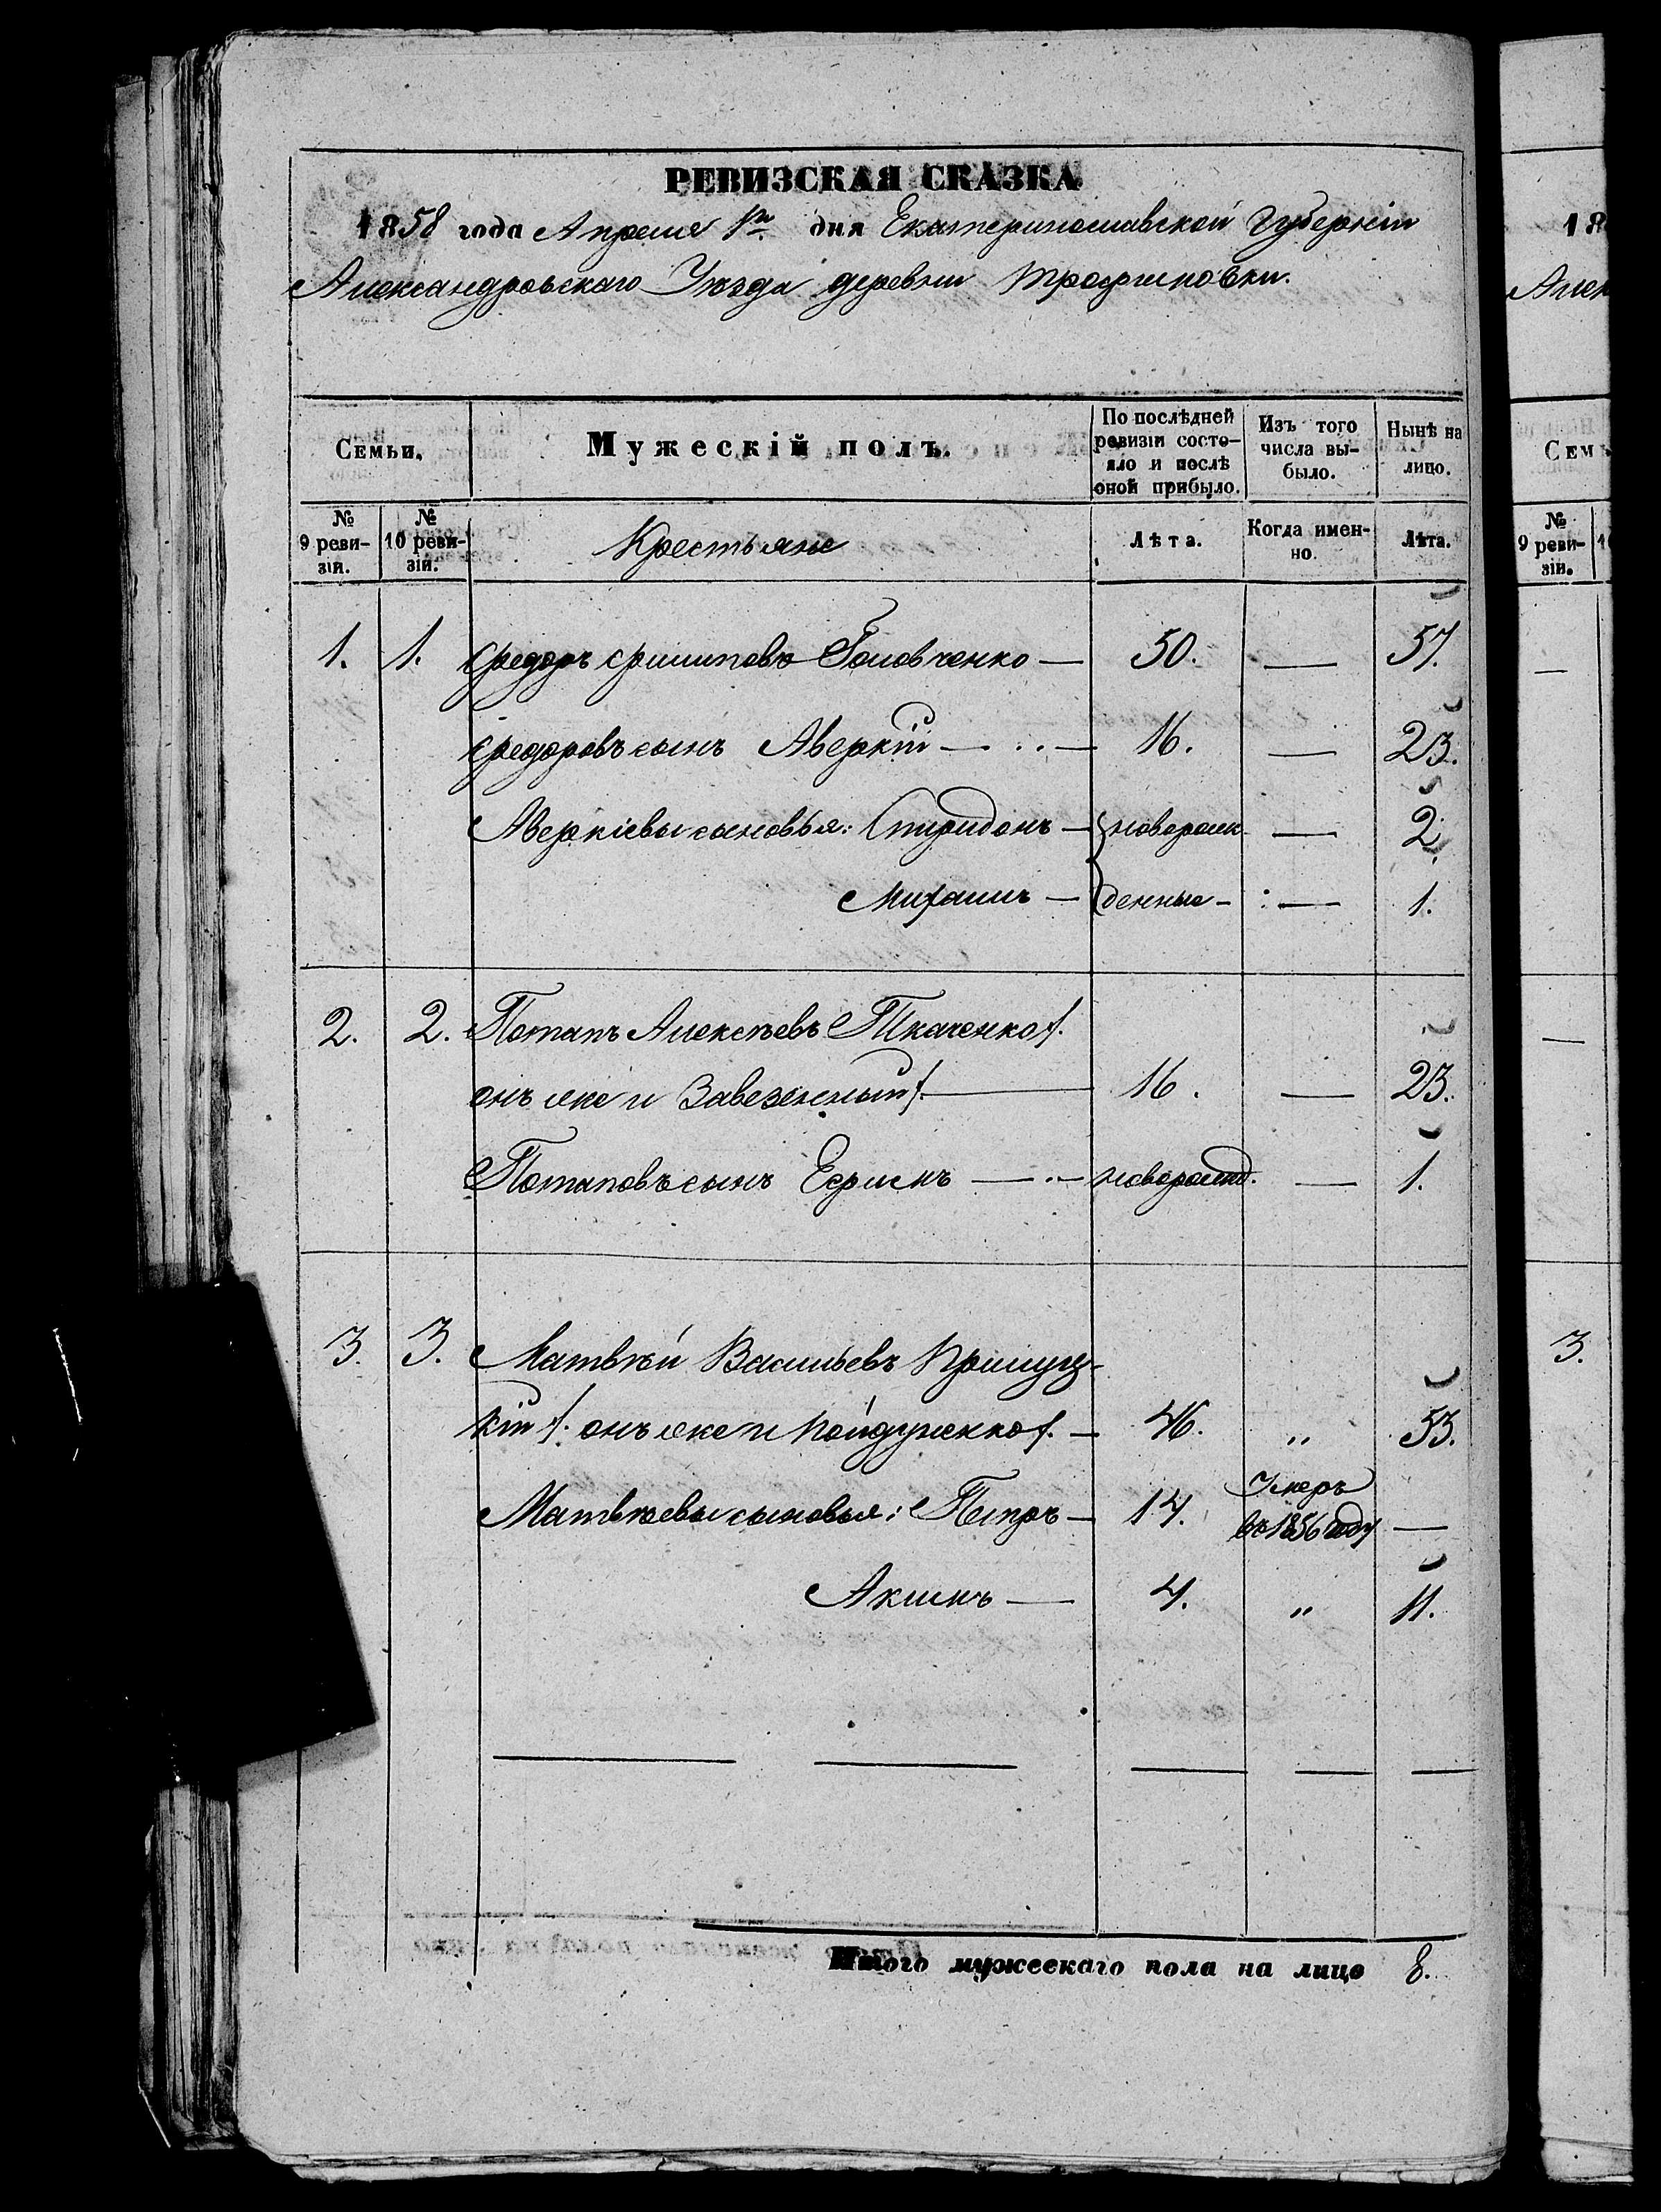 РЕВИЗСКАЯ СКАЗКА
1858 года Апреля 1го дня Екатеринославской Губерніи
Александровскаго Уѣзда деревни Трофимовки.
Семьи. Мужескій полъ. По послѣдней ревизіи состояло и послѣ оной прибыло. Изъ того числа выбыло. Нынѣ на лицо.
№ 9 ревизіи. № 10 ревизіи. Крестьяне Лѣта. Когда именно. Лѣта.
1. 1. Федоръ Филиповъ Головченко — 50. — 57.
Федоровъ сынъ Аверкій — 16. — 23.
Аверкіевы сыновья: Спиридонъ — новорож- — 2.
Михаилъ — денные — — 1.
2. 2. Потапъ Алексѣевъ Ткаченко /:
онъ же и Завезенный :/ — 16. — 23.
Потаповъ сынъ Ефимъ — новорожд. — 1.
3. 3. Матвѣй Васильевъ
кій /: онъ же и :/ — 46. „ 53.
Матвѣевы сыновья: Петръ — 14. Умеръ въ 1856 году —
Акимъ — 4. „ 11.
Итого мужескаго пола на лицо 8.
18
Алек
Семь
№ 9 ревизіи.
3.